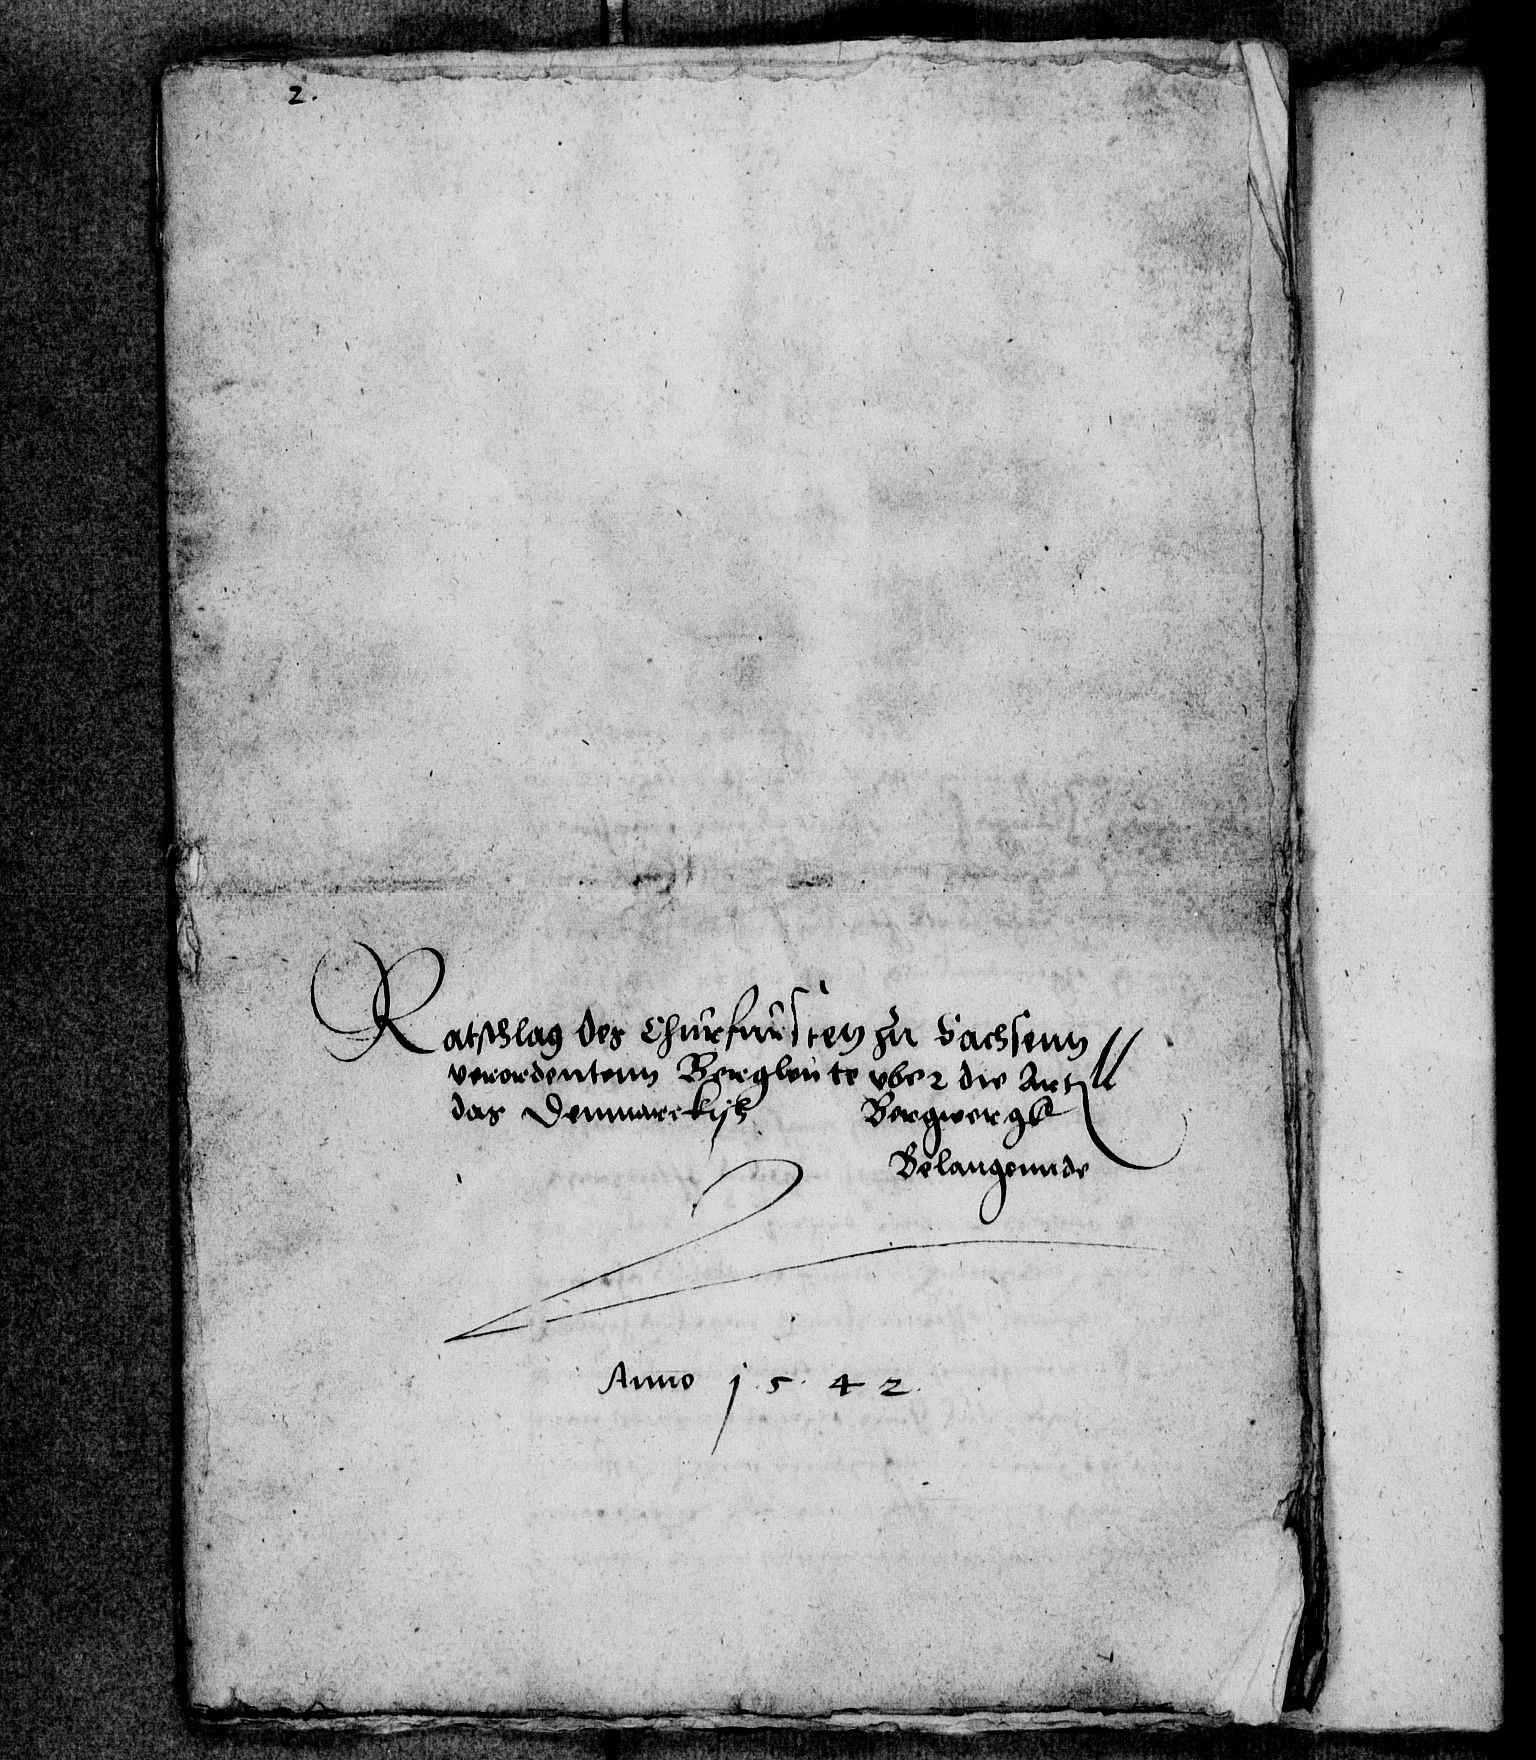 2.
Ratschlag des Churfursten zu Sachsenn
verordentenn Bergleute vber die Art
das Denmarckisch Bergwergk
Belangennde
Anno 1 5 4 2.